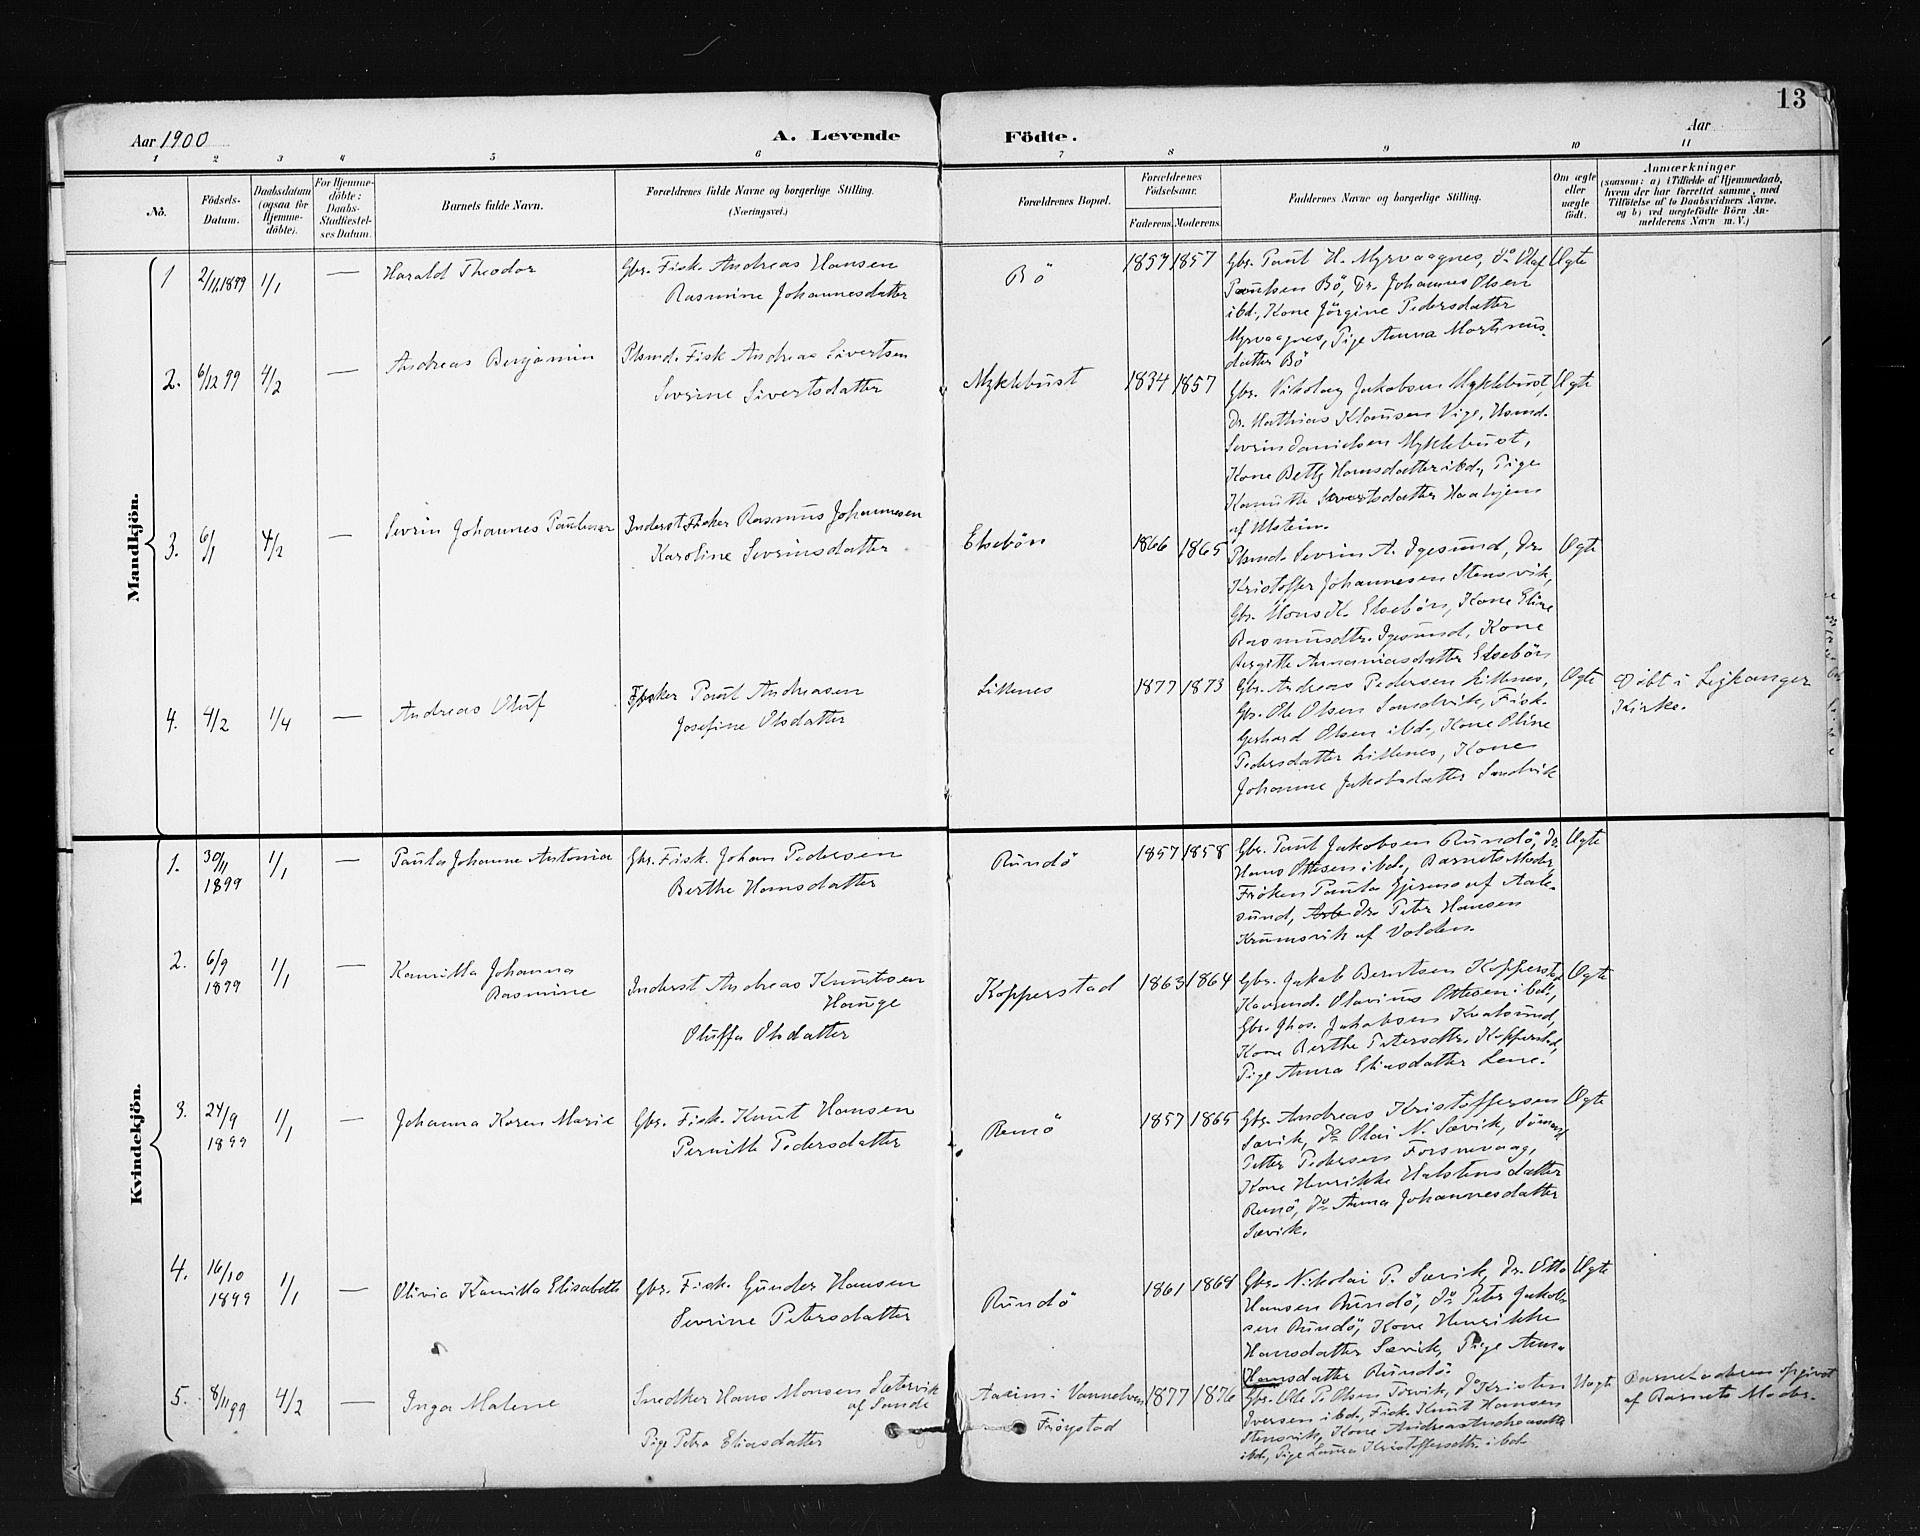 13
Aar 1900
A. Levende Födte.
Aar
1 2 3 4 5 6 7 8 9 10 11
No.
Födsels-Datum.
Daabsdatum (ogsaa for Hjemme-döbte).
For Hjemme-döbte: Daabs-Stadfæstel-ses Datum.
Barnets fulde Navn.
Forældrenes fulde Navne og borgerlige Stilling. (Næringsvei.)
Forældrenes Bopæl.
Forældrenes Födselsaar.
Faderens. Moderens.
Faddernes Navne og borgerlige Stilling.
Om ægte eller uægte födt.
Anmærkninger
(saasom: a) i Tilfælde af Hjemmedaab, hvem der har forrettet samme, med Tilföielse af to Daabsvidners Navne, og b) ved uægtefödte Börn An-melderens Navn m. V.)
Mandkjön.
1 2/11.1899 1/1 — Harald Theodor
Gbr. Fisk. Andreas Hansen
Rasmine Johannesdatter
Bö 1857 1857
Gbr. Paul H. Myrvaagnes, do Olaf
Paulsen Bö, Dr. Johannes Olsen
ibd., Kone Jörgine Pedersdatter
Myrvaagnes, Pige Anna Martinus-
datter Bö
Ægte
2. 6/12 99 4/2 — Andreas Benjamin
Plsmd. Fisk Andreas Sivertsen
Sevrine Sivertsdatter
Myklebust 1834 1857
Gbr. Nikolay Jakobsen Myklebust,
Dr. Mathias Klausen Vige, Husmd.
Sevrin Danielsen Myklebust,
Kone Betty Hansdatter ibd., Pige
Sivertsdatter
af Ulstein.
Ægte
3. 6/1 4/2 — Sevrin Johannes Paulinar
Inderst Fisker Rasmus Johannesen
Karoline Sevrinsdatter
Eksebön 1866 1865
Plsmd. Sevrin A. Igesund, Dr.
Kristoffer Johannesen Stensvik,
Gbr. Hans K. Eksebön, Kone Eline
Rasmusdtr. Igesund, Kone
Birgitte Ananiasdatter Eksebön
Ægte
4. 4/2 1/4 — Andreas Oluf
Fisker Paul Andreasen
Josefine Olsdatter
Lillenes 1877 1873
Gbr. Andreas Pedersen Lillenes,
Gbr. Ole Olsen Sandvik, Fisk.
Gerhard Olsen ibd., Kone Oline
Pedersdatter Lillenes, Kone
Johanne Jakobsdatter Sandvik
Ægte
Döbt i Leikanger
Kirke.
Kvindekjön.
1. 30/11 1899 1/1 — Paula Johanne Antonia
Gbr. Fisk. Johan Pedersen
Berthe Hansdatter
Rundö 1857 1858
Gbr. Paul Jakobsen Rundö, Dr.
Hans Ottesen ibd., Barnets Moder,
Fröken Paula af Aale-
sund, Dr. Peter Hansen
Krumsvik af Volden.
Ægte
2. 6/9 1899 1/1 — Kamilla Johanna
Rasmine
Inderst Andreas Knutsen
Hauge
Oluffa Olsdatter
Kopperstad 1863 1864
Gbr. Jakob Berntsen Kopperstad,
Olavius Ottesen ibd.,
Gbr. Jakobsen Kvalsund,
Kone Berthe Petersdtr. Kopperstad,
Pige Anna Eliasdatter Lene.
Ægte
3. 24/9 1899 1/1 — Johanna Karen Marie
Gbr. Fisk. Knut Hansen
Pernille Pedersdatter
Remö 1857 1865
Gbr. Andreas Kristoffersen
Sævik, do Olai N. Sævik,
Petter Pedersen
Kone Henrikke Halstensdatter
Remö, do Anna Johannesdatter
Sævik.
Ægte
4. 16/10 1899 1/1 — Olivia Kamilla Elisabeth
Gbr. Fisk. Gunder Hansen
Sevrine Petersdatter
Rundö 1861 1864
Gbr. Nikolai P. Sævik, Dr. Otto
Hansen Rundö, do Peter Jakob-
sen Rundö, Kone Henrikke
Hansdatter Sævik, Pige Anna
Hansdatter Rundö.
Ægte
5. 8/11 99 4/2 — Inga Malene
Snedker Hans Monsen Sætervik
af Sande
Pige Petra Eliasdatter
i Vannelven
Fröystad
1877 1876
Gbr. Ole P. Olsen do Kristen
Iversen ibd., Fisk. Knut Hansen
Stensvik, Kone
ibd., Pige Laura Kristoffersdtr. ibd.
Uægte
Barnefaderen opgivet
af Barnets Moder.